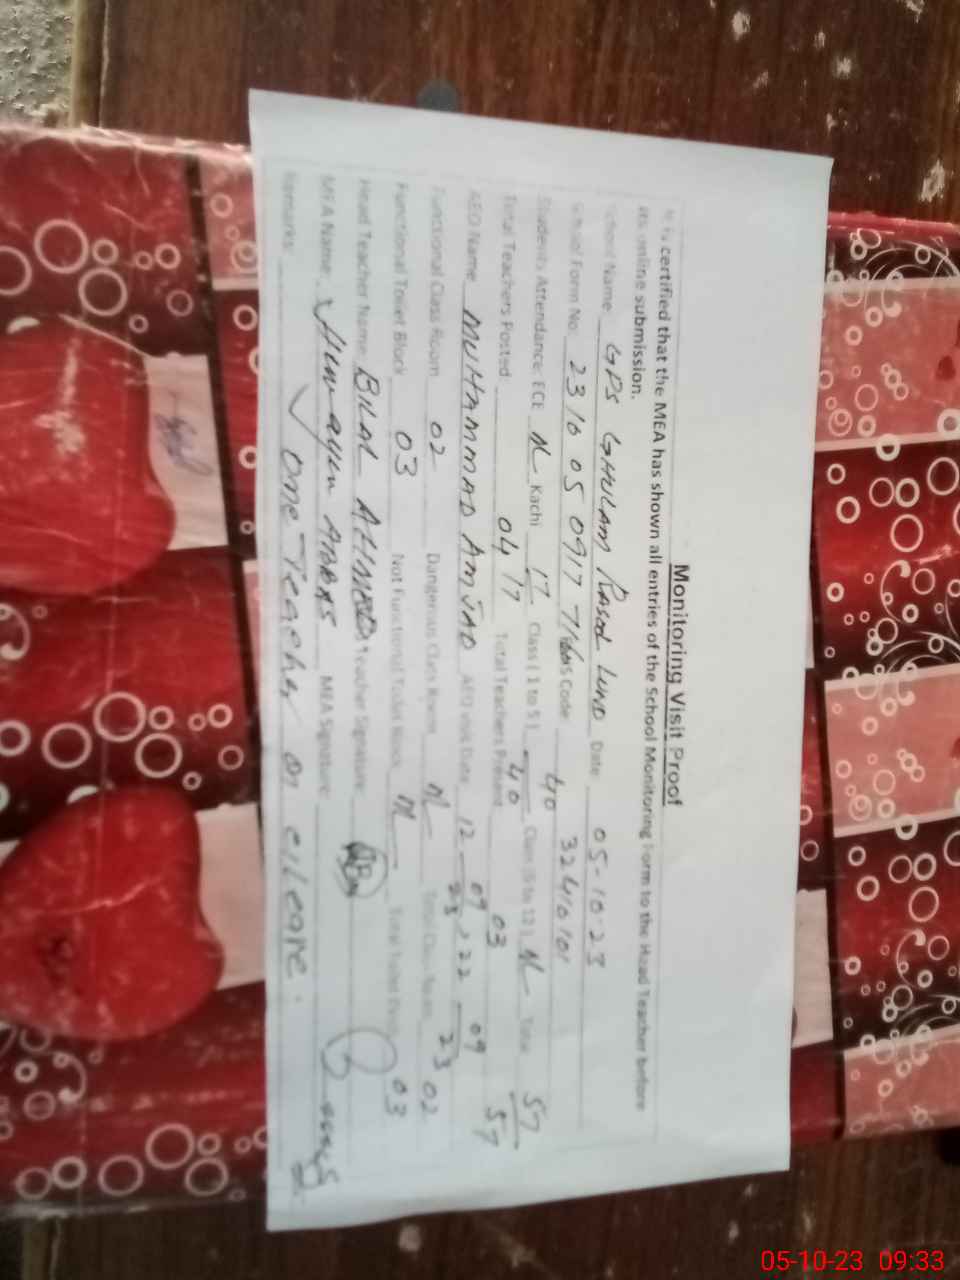 Monitoring Visit Proof
It is certified that the MEA has shown all entries of the School Monitoring Form to the Head Teacher before
its online submission.
School Name GPS GHULAM Rasool LUND Date 05-10-23
School Form No. 2310050917 Code 32410101
Students Attendance: ECE Kachi 17 Class (1 to 5) 40 Total 57
17 40 57
Total Teachers Posted 04 Total Teachers Present 03
AEO Name MUHAMMAD AMJAD AEO Visit Date 12 07 23, 22 09 23
Functional Class Room 02 Dangerous Class Room Total Class Room 02
Functional Toilet Block 03 Not Functional Toilet Block Total Toilet Block 03
Head Teacher Name BILAL AHMED Teacher Signature
MEA Name Humayun ABBAS MEA Signature
Remarks: one Teacher on
05-10-23 09:33